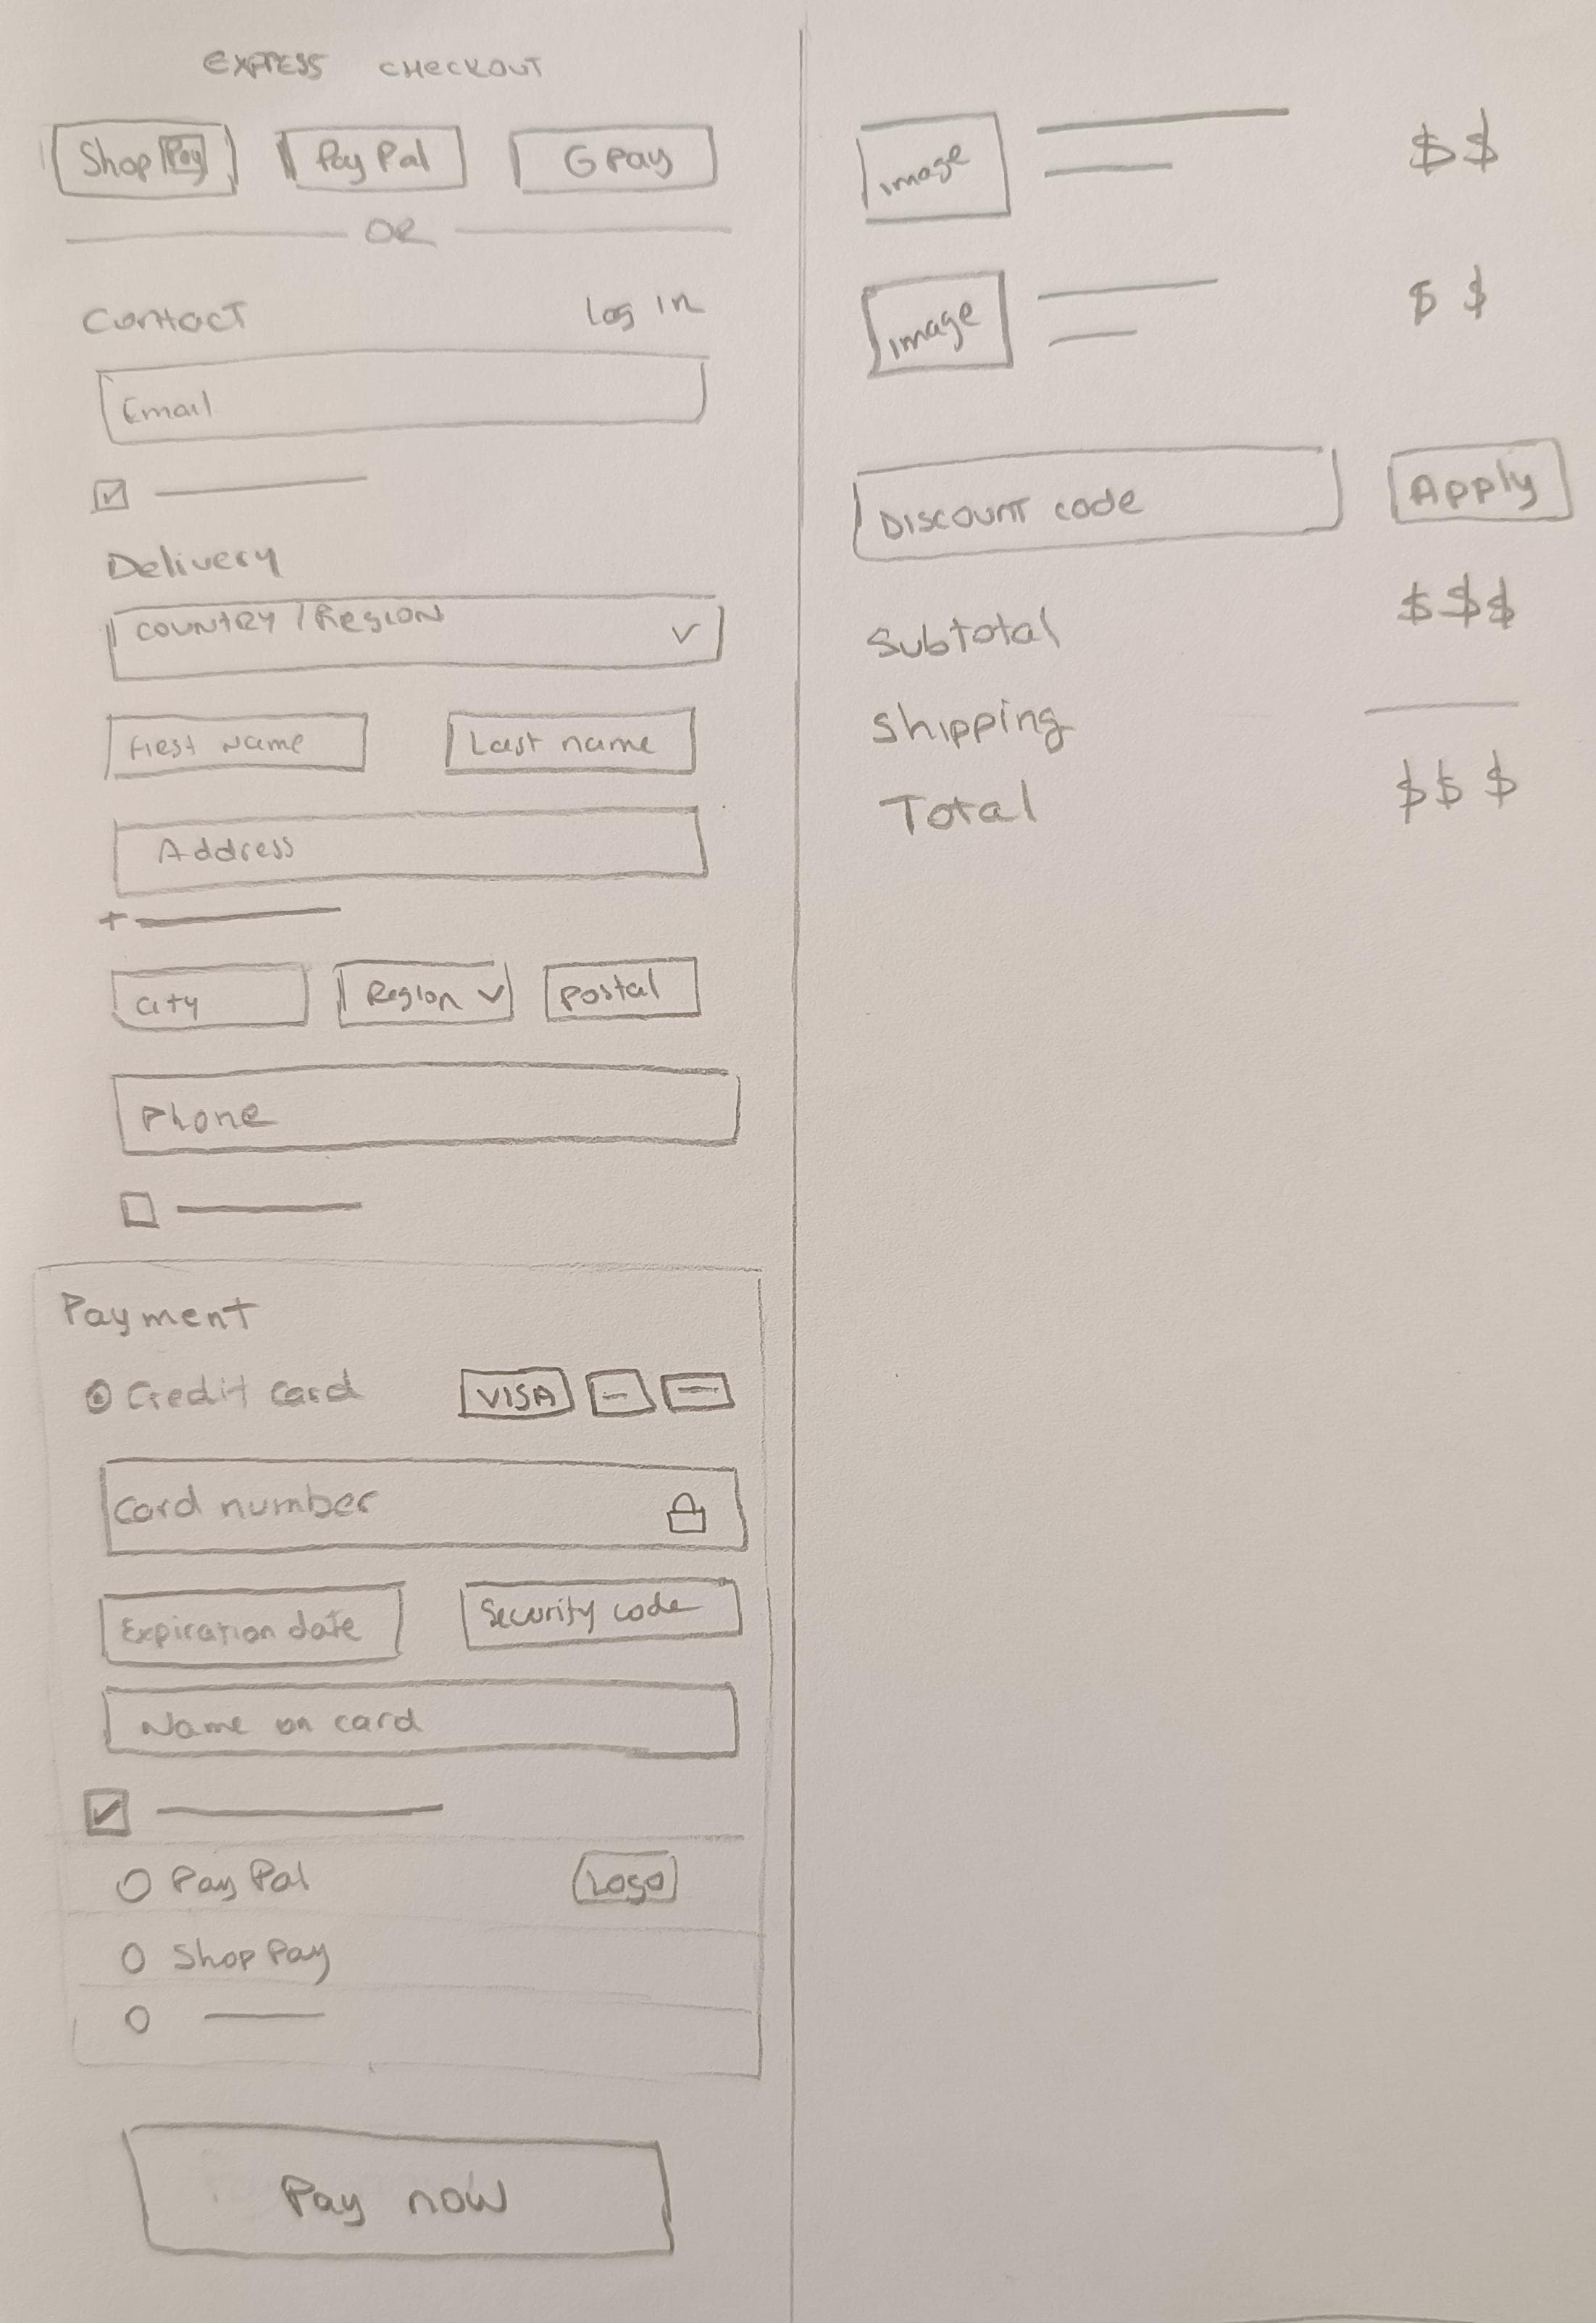 EXPRESS CHECKOUT
Shop Pay
PayPal
G Pay
OR
Contact
Log in
Email
Delivery
COUNTRY / REGION
First Name
Last name
Address
+
City
Region
Postal
Phone
Payment
Credit card
VISA
Card number
Expiration date
Security code
Name on card
PayPal
Logo
Shop Pay
Pay now
image
$$
image
$ $
Discount code
Apply
Subtotal
$$$
Shipping
Total
$$ $